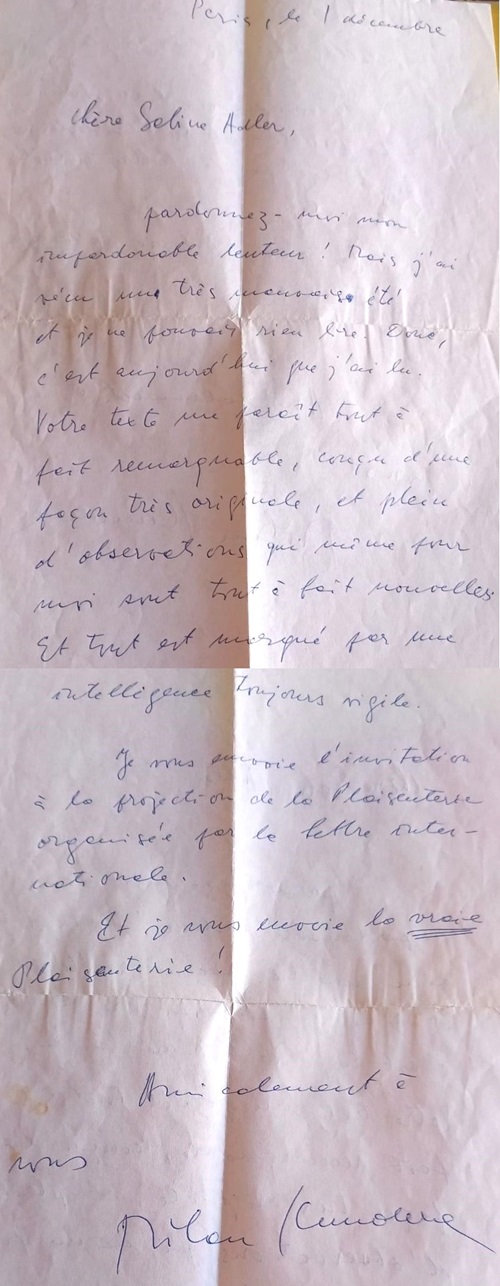 Paris, le 1 décembre
Chère Sabine Adler,
pardonnez-moi mon
impardonable lenteur ! Mais j'ai
vécu une très mauvaise été
et je ne pouvais rien lire. Donc,
c'est aujourd'hui que j'ai lu.
Votre texte me paraît tout à
fait remarquable, conçu d'une
façon très originale, et plein
d'observations qui même pour
moi sont tout à fait nouvelles
Et tout est marqué par une
intelligence toujours vigile.
Je vous envoie l'invitation
à la projection de la Plaisenterie
organisée par la lettre inter-
nationale.
Et je vous envoie la vraie
Plaisanterie !
Amicalement à
vous
Milan Kundera